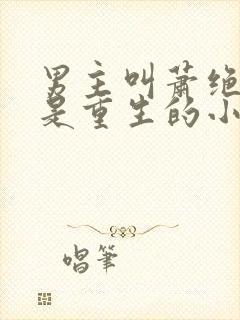 男主叫萧绝
是重生的小
唱筆